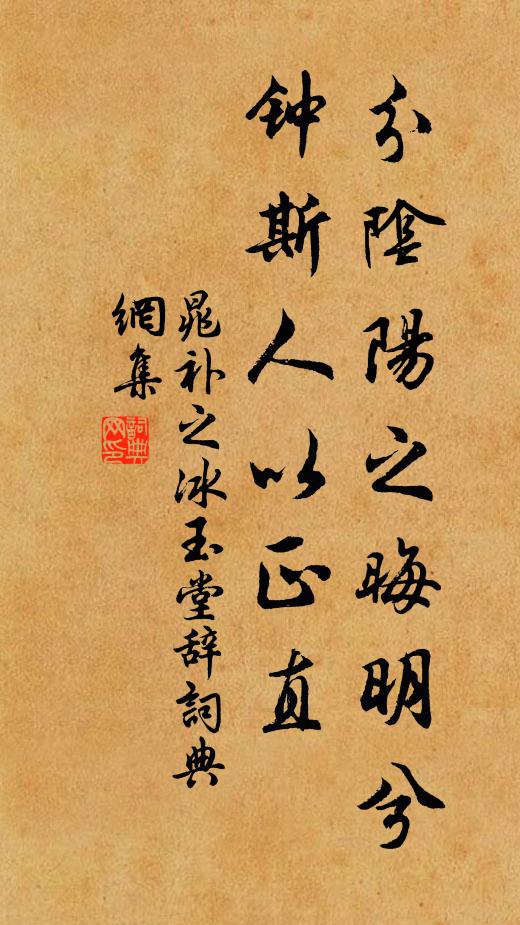 分陰陽之晦明兮
钟斯人以正直
晁补之冰玉堂辞詞典
網集
詞典
网印